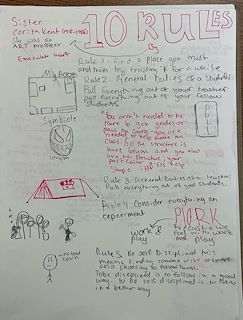 Sister
Corita Kent (1918-1986)
She was an
ART professor
Immaculate heart
10 RULES
By
Rule 1: Find a place you trust
and then try trusting it for a while
Rule 2: General Duties of a Student:
Pull Everything out of your teacher
Pull everything out of your fellow
students
My Room
Symbiote
Venom
You aren't needed to be
here to get grades or
pass the course you're
needed to help make the
class. So the structure is
here
and you also
are the structure; your
particular
shape IN IT help
Rule 3: General Duties of a teacher:
Pull everything out of your students.
Rule 4: Consider everything an
experiment
work &
play
PLORK
The ecastie we
feel with work
and play
no
brain
Rule 5 Be self Disciplined this
means finding someone wise or smart
and choosing to follow them.
To be disciplined is to follow in a good
way. To be self disciplined is to follow
in a better way